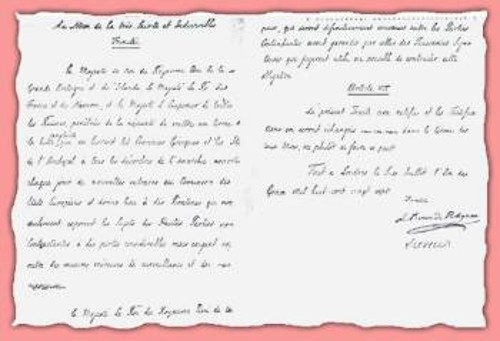 Au Nom de la très Sainte et Indivisible
Trinité
Sa Majesté le Roi du Royaume Uni de la
Grande Bretagne et de l'Irlande, Sa Majesté le Roi de
France et de Navarre, et Sa Majesté l'Empereur de toutes
les Russies, pénétrés de la nécessité de mettre un terme à
la lutte sanglante qui en livrant les Provinces Grecques et les Iles
de l'Archipel à tous les désordres de l'anarchie
chaque jour de nouvelles entraves au Commerce des
Etats Européens et donne lieu à des Pirateries qui non
seulement exposent les Sujets des Hautes Parties
Contractantes à des pertes considérables mais exigent en
outre des mesures de surveillance et de
Sa Majesté le Roi du Royaume Uni de la
paix, qui seront définitivement entre les Parties
Contendantes soient garantis par celles des Puissances Signa
taires qui jugeront utile ou possible de contracter cette
obligation
Article VII
Le présent Traité sera ratifié et les Ratifica
tions en seront échangées dans le terme de
deux Mois, ou plutôt si faire se peut
Fait à Londres le Six Juillet l'An de
Grace Mil huit cent vingt sept